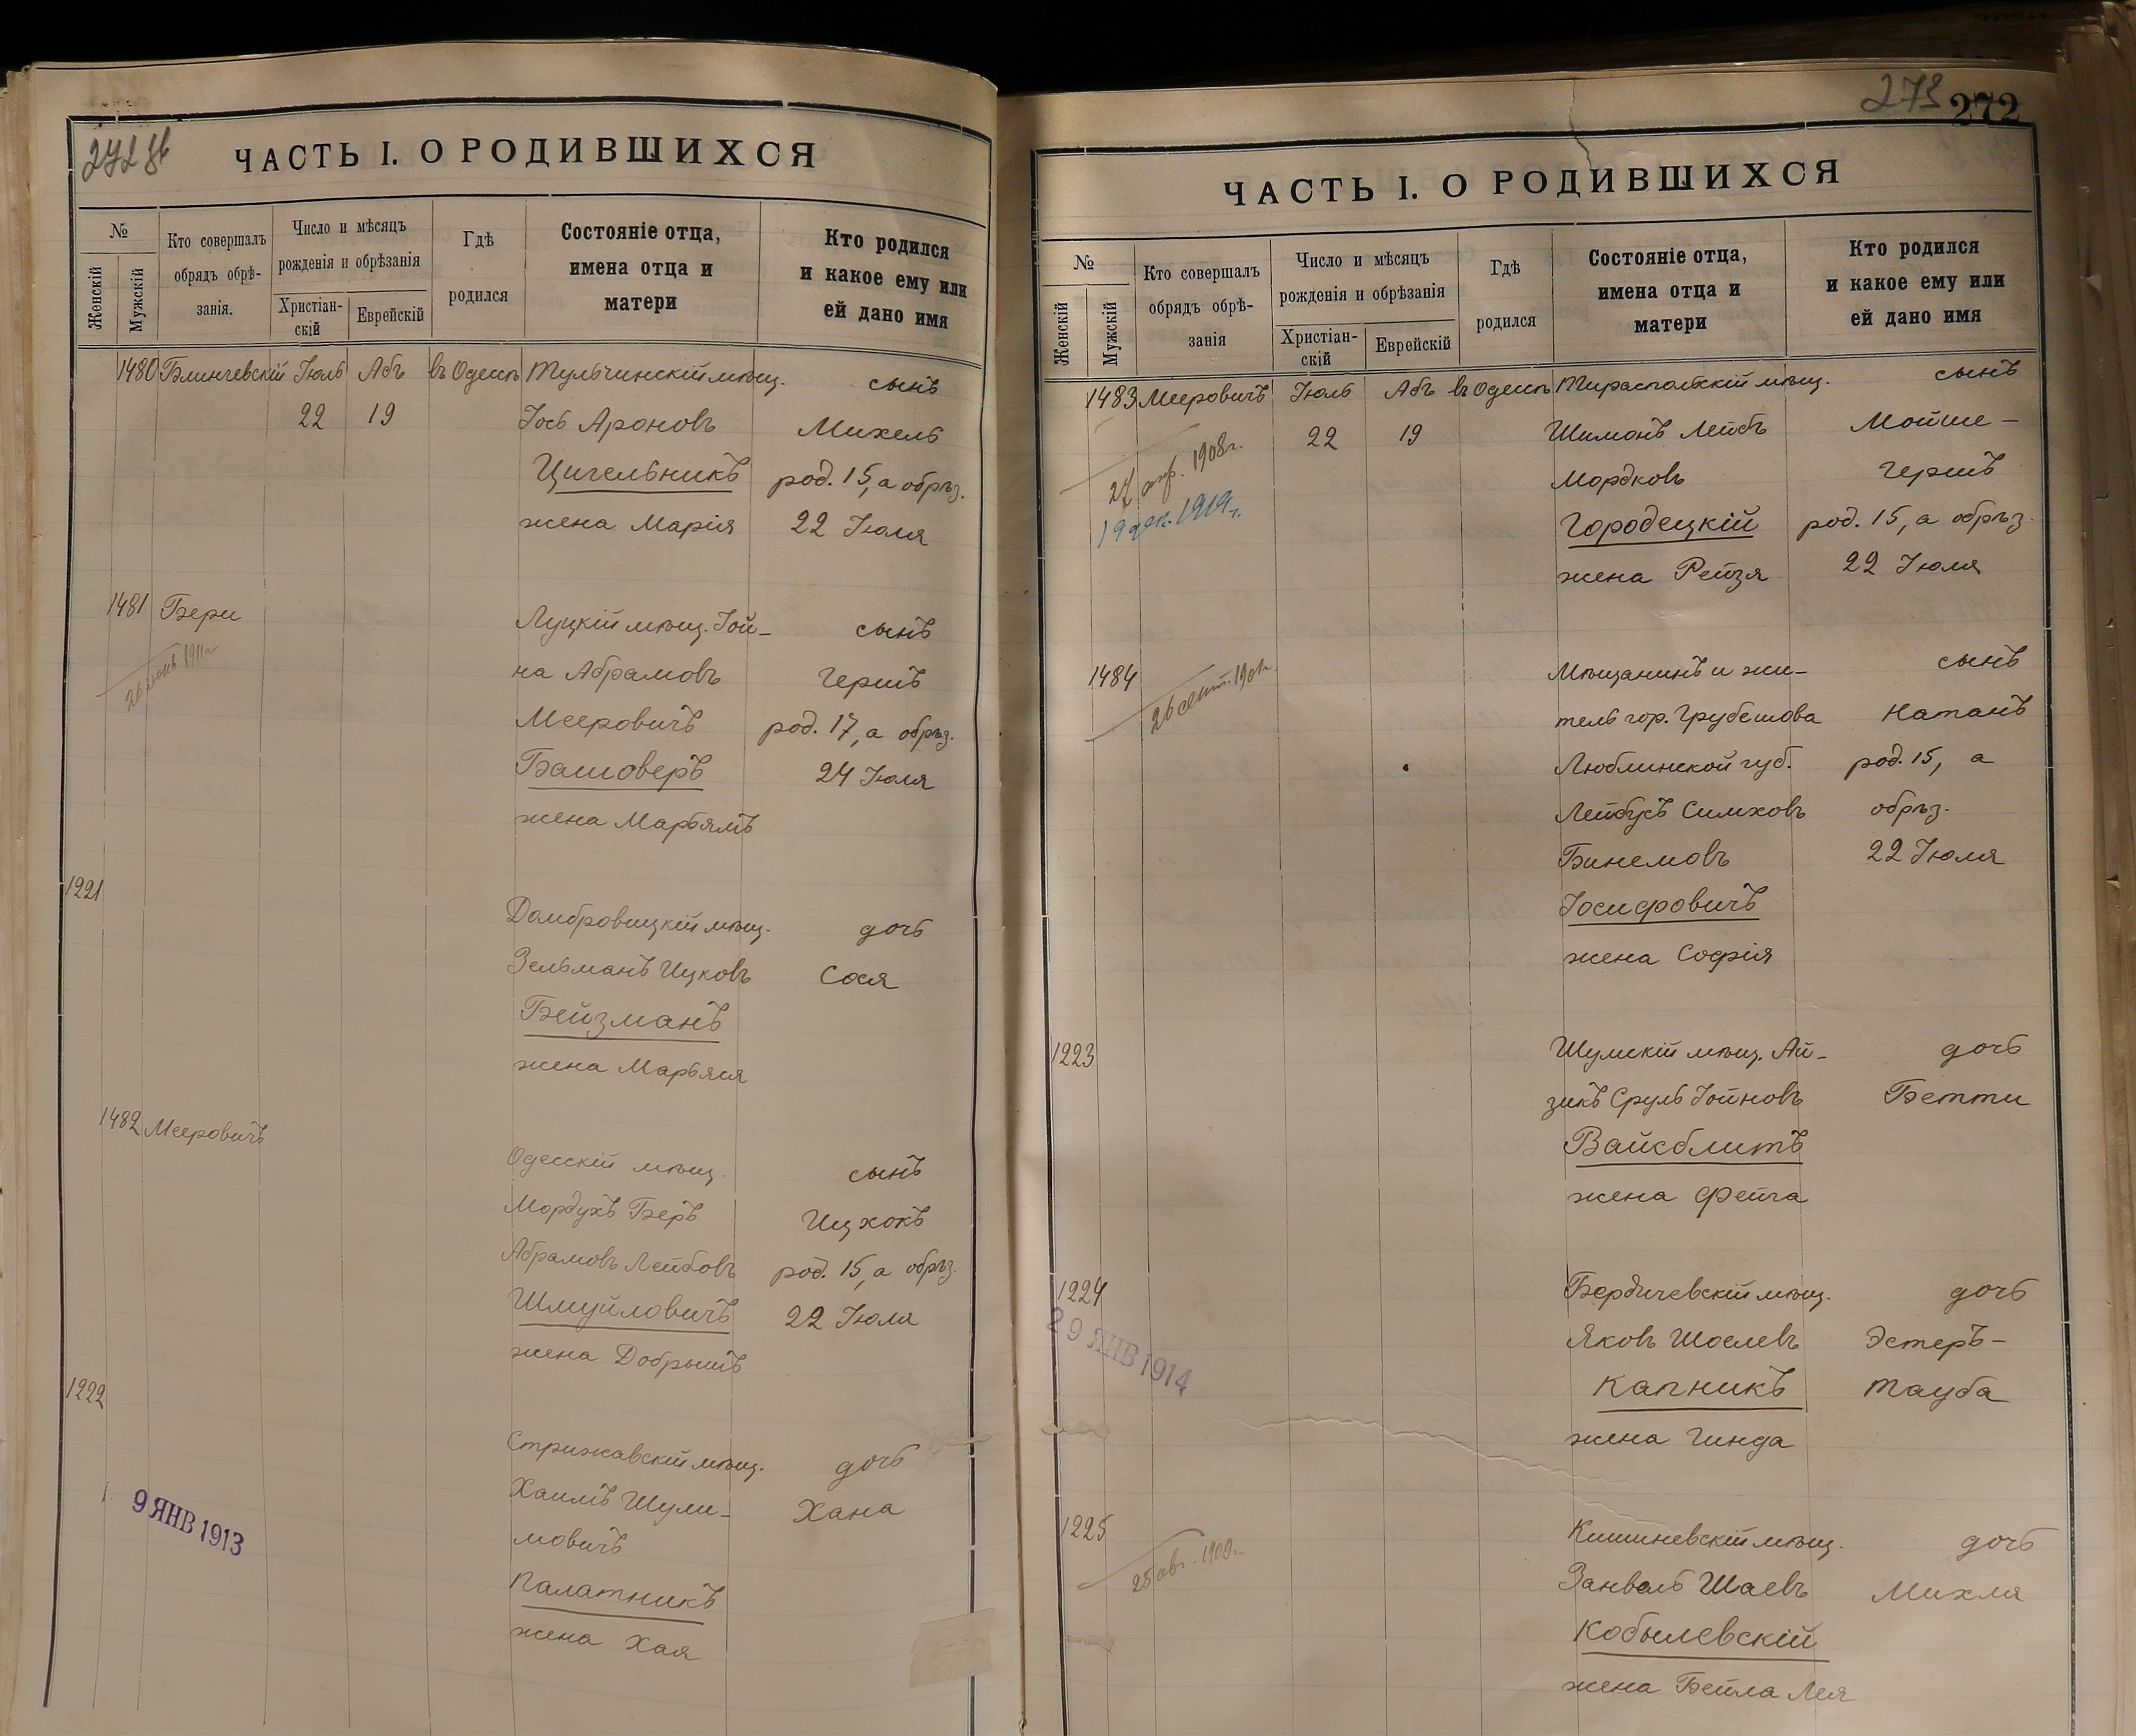 272 об
ЧАСТЬ I. О РОДИВШИХСЯ
№
Женскій
Мужскій
Кто совершалъ
обрядъ обрѣ-
занія.
Число и мѣсяцъ
рожденія и обрѣзанія
Христіан-
скій
Еврейскій
Гдѣ
родился
Состояніе отца,
имена отца и
матери
Кто родился
и какое ему или
ей дано имя
1480 Блинчевскій Іюль Абъ въ Одессѣ Тульчинскій мѣщ. сынъ
22 19 Іось Ароновъ Михель
Цигельникъ род. 15, а обрѣз.
жена Марія 22 Іюля
1481 Бери Луцкій мѣщ. Іой- сынъ
26 1911г на Абрамовъ Гершъ
Мееровичъ род. 17, а обрѣз.
Башоверъ 24 Іюля
жена Марьямъ
1221
Домбровицкій мѣщ. дочь
Зельманъ Ицковъ Сося
Бейзманъ
жена Марьяся
1482 Мееровичъ
Одесскій мѣщ. сынъ
Мордухъ Беръ Ицхокъ
Абрамовъ Лейбовъ род. 15, а обрѣз.
Шмуйловичъ 22 Іюля
жена Добрышъ
1222
Стрижавскій мѣщ. дочь
Хаимъ Шули- Хана
мовичъ
Палатникъ
жена Хая
9 ЯНВ 1913
273 272
ЧАСТЬ I. О РОДИВШИХСЯ
№
Женскій
Мужскій
Кто совершалъ
обрядъ обрѣ-
занія
Число и мѣсяцъ
рожденія и обрѣзанія
Христіан-
скій
Еврейскій
Гдѣ
родился
Состояніе отца,
имена отца и
матери
Кто родился
и какое ему или
ей дано имя
1483 Мееровичъ Іюль Абъ въ Одессѣ Тираспольскій мѣщ. сынъ
22 19 Шимонъ Лейбъ Мойше-
27 апр. 1908г. Мордковъ Гершъ
19 дек. 1919г. Городецкій род. 15, а обрѣз.
жена Рейзя 22 Іюля
1484 Мѣщанинъ и жи- сынъ
26 сент. 1901г. тель гор. Грубешова Натанъ
Люблинской губ. род. 15, а
Лейбусъ Симховъ обрѣз.
Бинемовъ 22 Іюля
Іосифовичъ
жена Софія
1223 Шумскій мѣщ. Ай- дочь
зикъ Сруль Іойновъ Бетти
Вайсблитъ
жена Фейга
1224 Бердичевскій мѣщ. дочь
29 ЯНВ 1914 Яковъ Шоелевъ Эстеръ-
Капникъ Тауба
жена Гинда
1225 Кишиневскій мѣщ. дочь
25 авг. 1909г. Занвель Шаевъ Михля
Кобылевскій
жена Бейла Лея